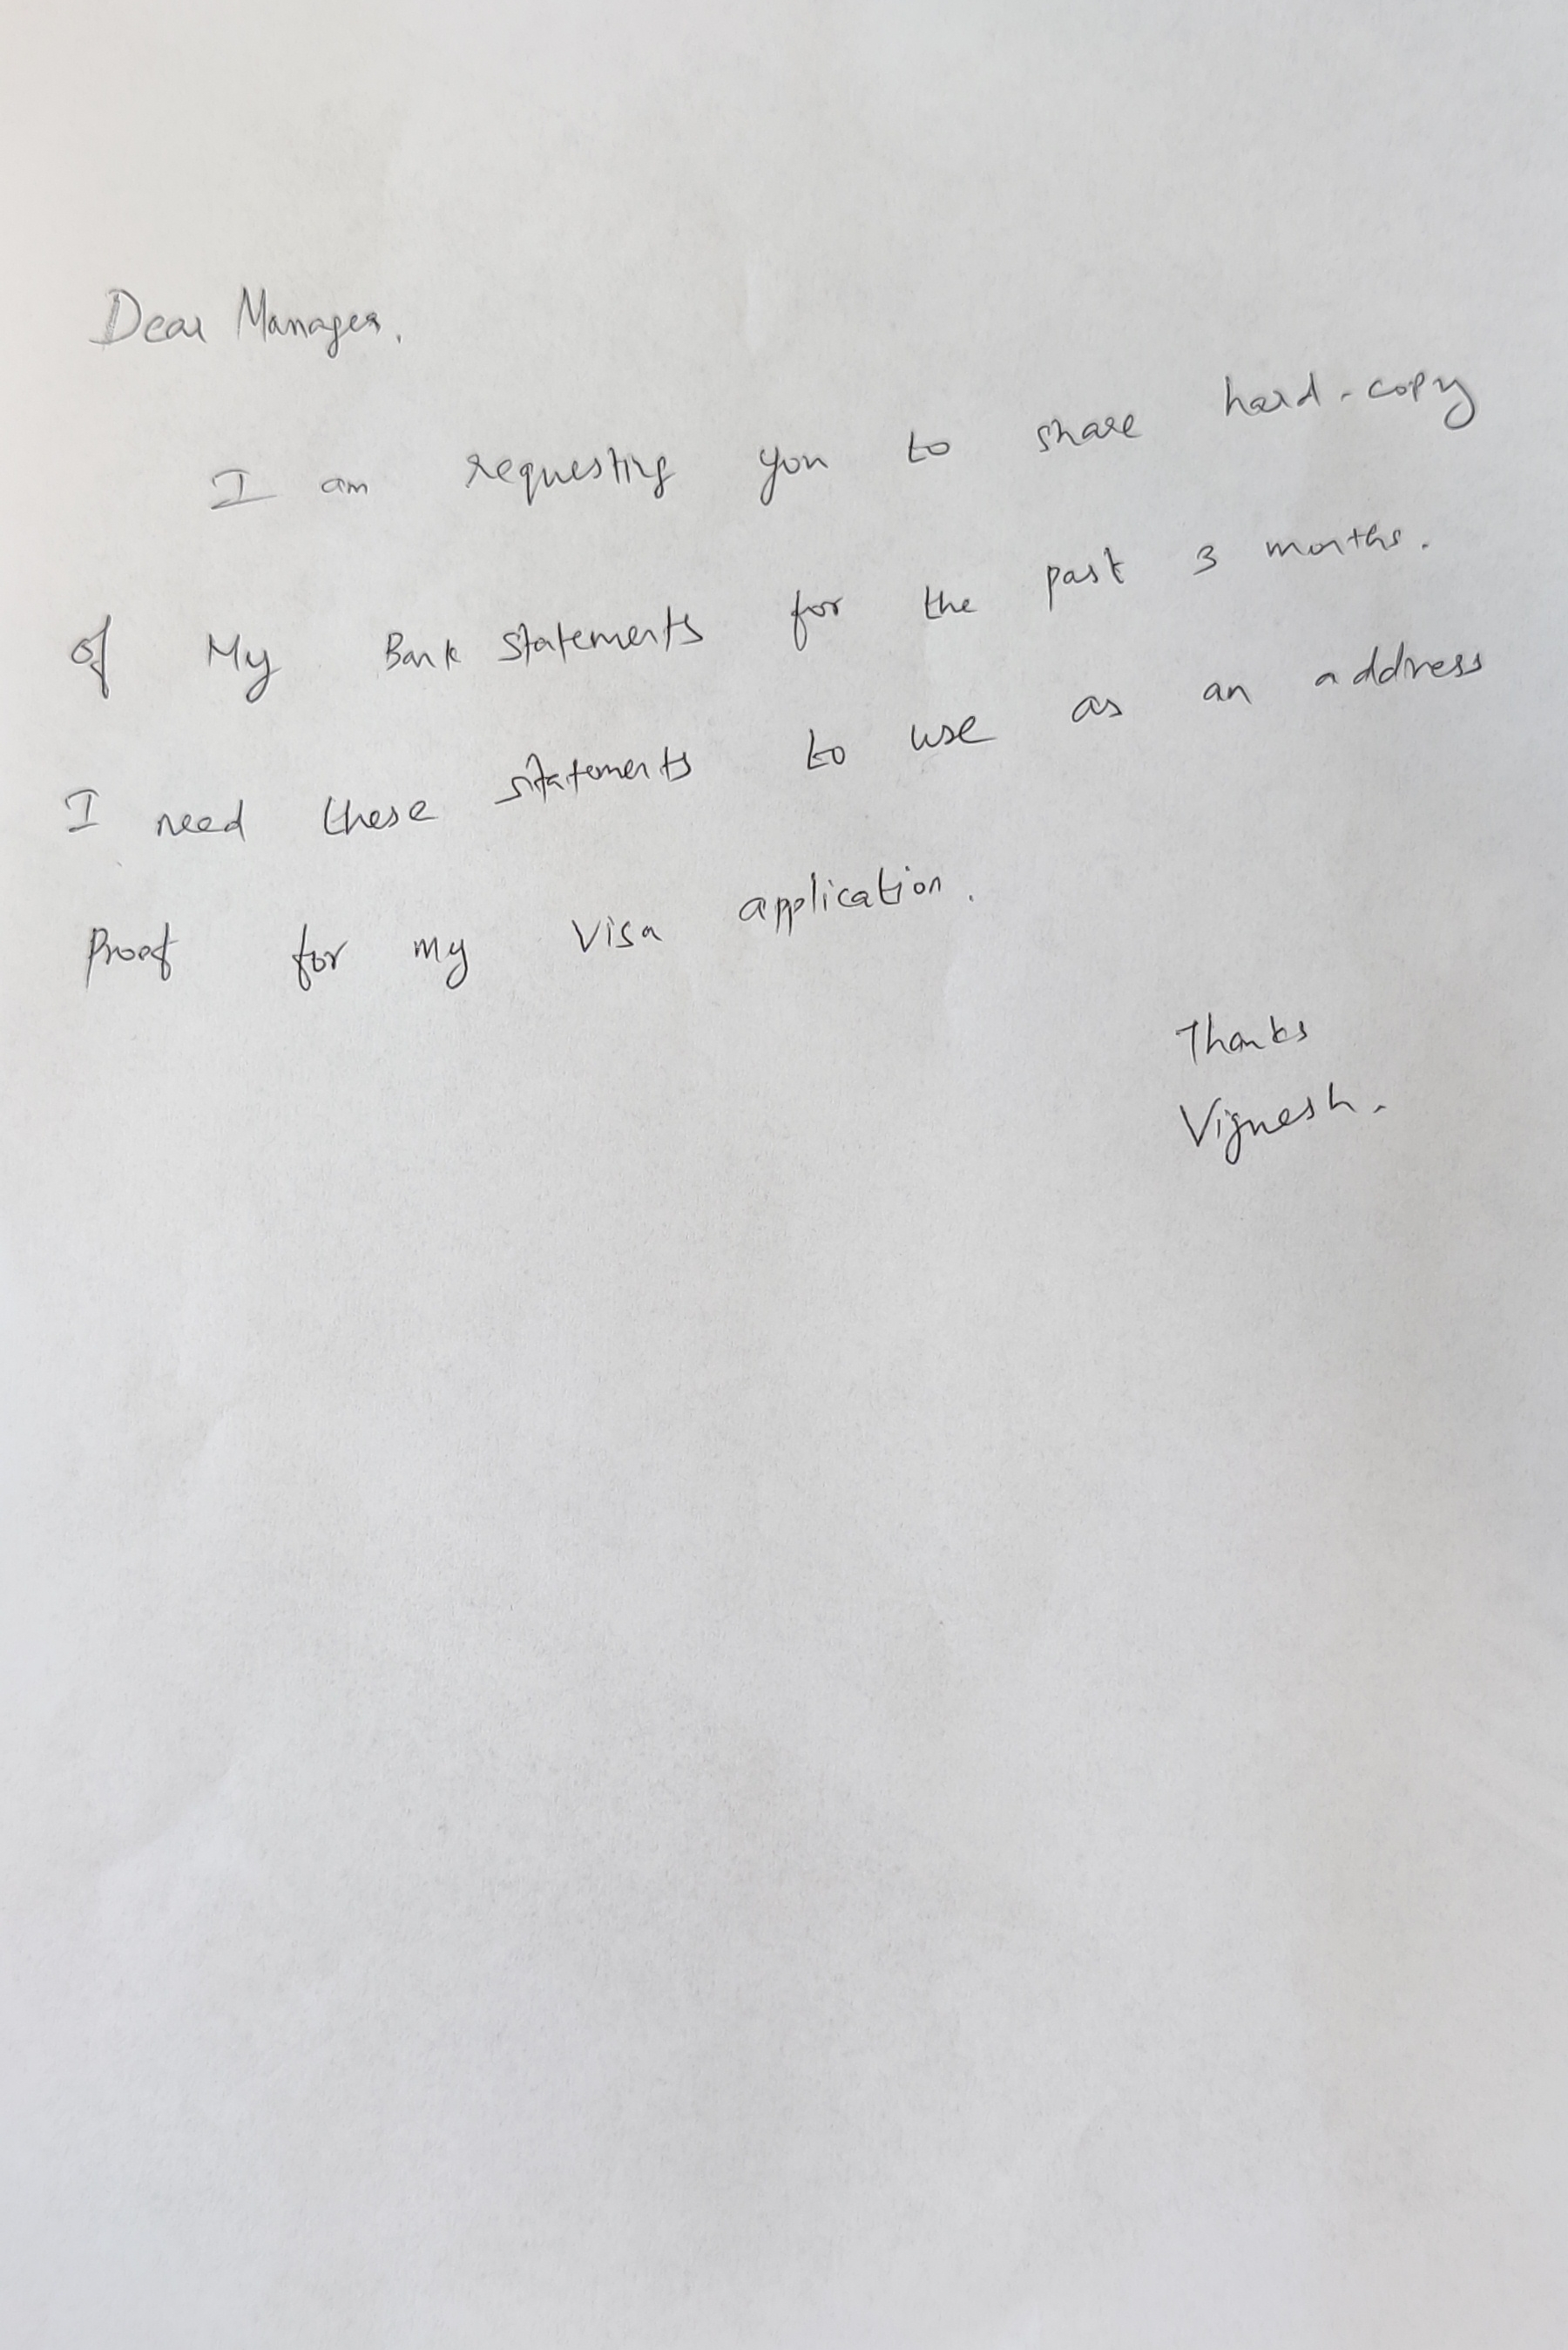 Dear Manager,
I am requesting you to share hard-copy
of My Bank statements for the past 3 months.
I need these statements to use as an address
Proof for my Visa application.
Thanks
Vignesh.